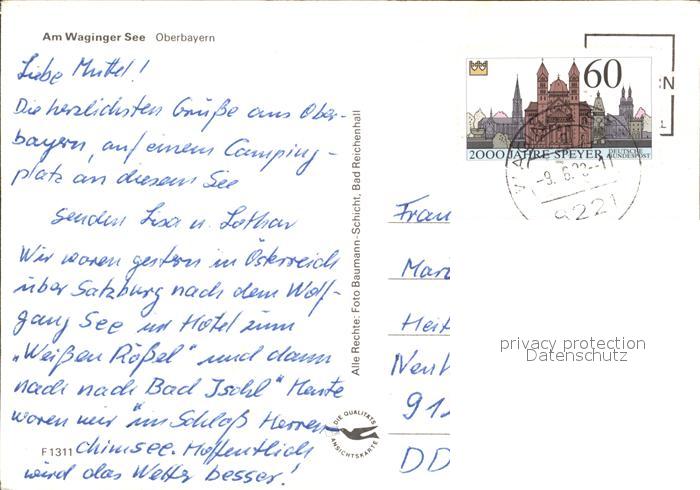 Am Waginger See Oberbayern
Liebe Muttel!
Die herzlichsten Grüße aus Ober-
bayern, auf einem Camping-
platz an diesem See
senden Lisa u. Lothar
Wir waren gestern in Österreich
über Salzburg nach dem Wolf-
gang See im Hotel zum
"Weißen Rößel" und dann
nach nach Bad Ischl" Heute
waren wir im Schloß Herren-
chimsee. Hoffentlich
wird das Wetter besser!
F 1311
Alle Rechte: Foto Baumann-Schicht, Bad Reichenhall
DIE QUALITÄTS
ANSICHTSKARTE
60
2000 JAHRE SPEYER DEUTSCHE
BUNDESPOST
-9.6.
Fran
Marz
Heit
91
DD
privacy protection
Datenschutz